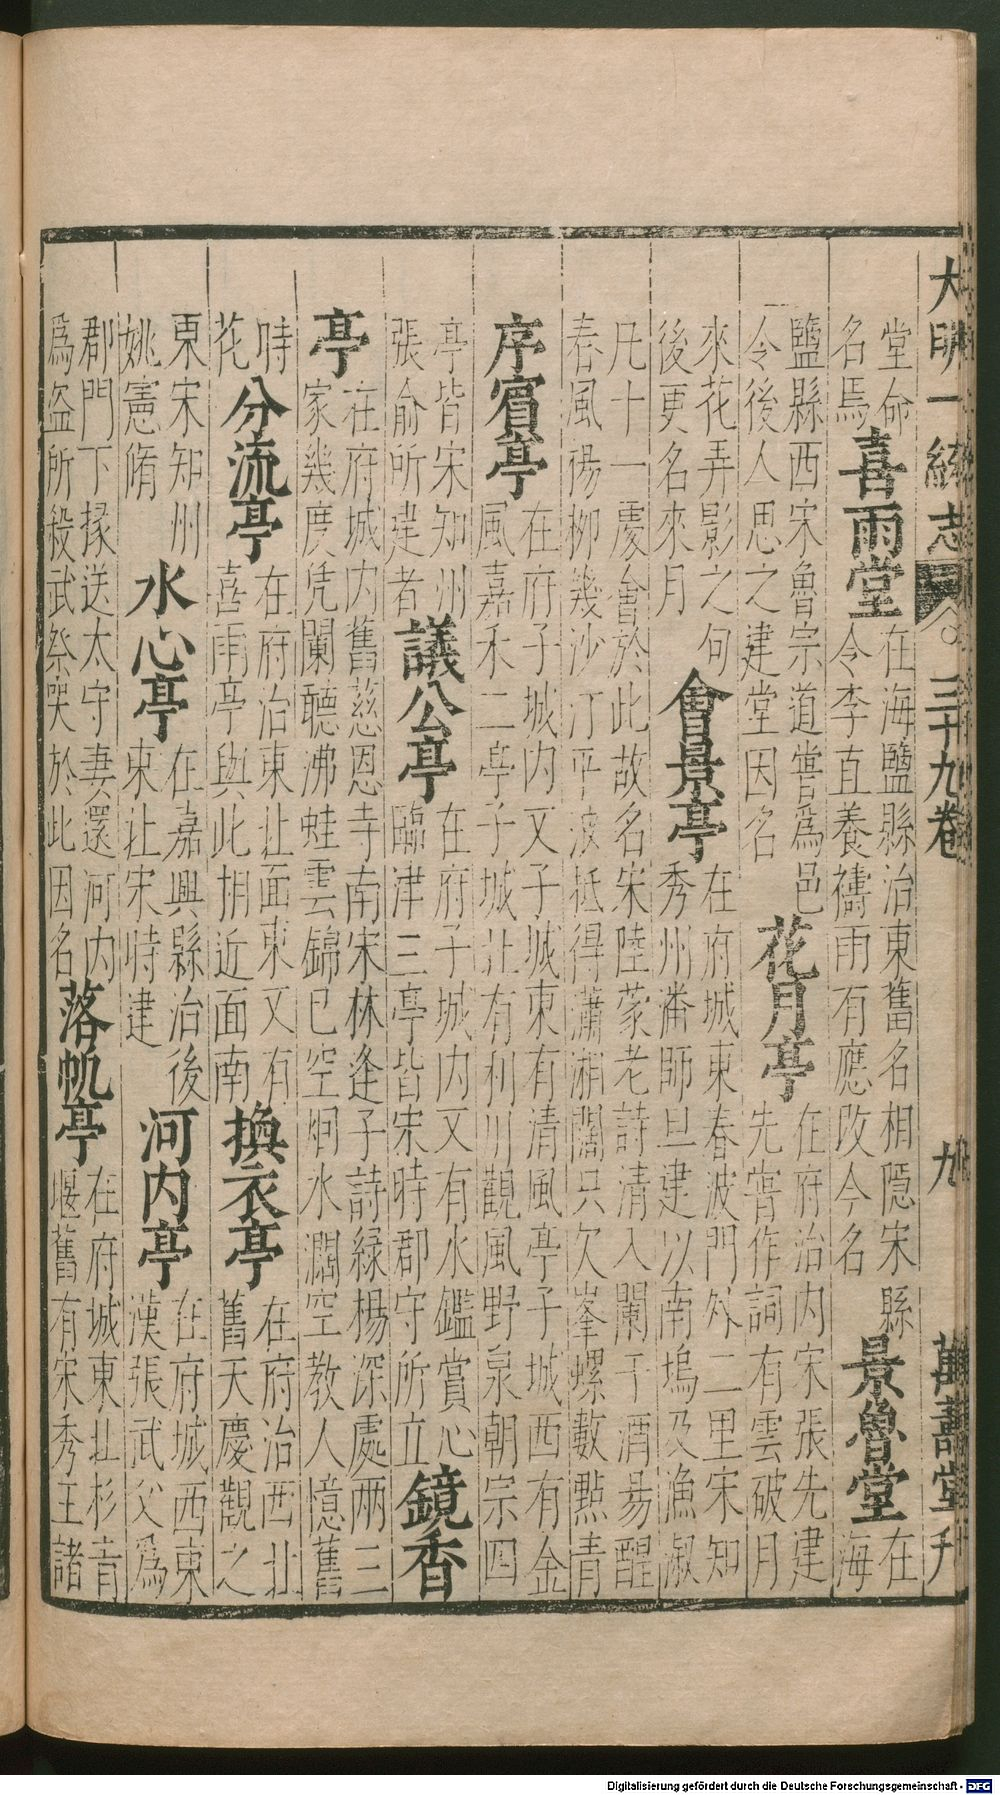 大明一統志 三十九卷 九 萬壽堂刊
堂命
名焉
喜雨堂
在海鹽縣治東舊名相隱宋縣
令李直養禱雨有應改今名
景魯堂
在
海
鹽縣西宋魯宗道嘗爲邑
令後人思之建堂因名
花月亭
在府治内宋張先建
先嘗作詞有雲破月
來花弄影之句
後更名來月
會景亭
在府城東春波門外二里宋知
秀州潘師旦建以南塢及漁溆
凡十一慶會於此故名宋陸蒙老詩清入闌干酒易醒
春風楊柳幾沙汀平波抵得瀟湘闊只欠峯螺數點青
序賓亭
在府子城内又子城東有清風亭子城西有金
風嘉禾二亭子城北有利川觀風野泉朝宗四
亭皆宋知州
張俞所建者
議公亭
在府子城内又有水鑑賞心
臨津三亭皆宋時郡守所立
鏡香
亭
在府城内舊慈恩寺南宋林逢子詩緑楊深處兩三
家幾度凭闌聽沸蛙雲錦已空炯水濶空教人憶舊
時
花
分流亭
在府治東北面東又有
喜雨亭與此相近面南
換衣亭
在府治西北
舊天慶觀之
東宋知州
姚憲脩
水心亭
在嘉興縣治後
東北宋時建
河内亭
在府城西東
漢張武父爲
郡門下掾送太守妻還河内
爲盗所殺武祭哭於此因名
落帆亭
在府城東北杉青
堰舊有宋秀王諸
Digitalisierung gefördert durch die Deutsche Forschungsgemeinschaft - DFG